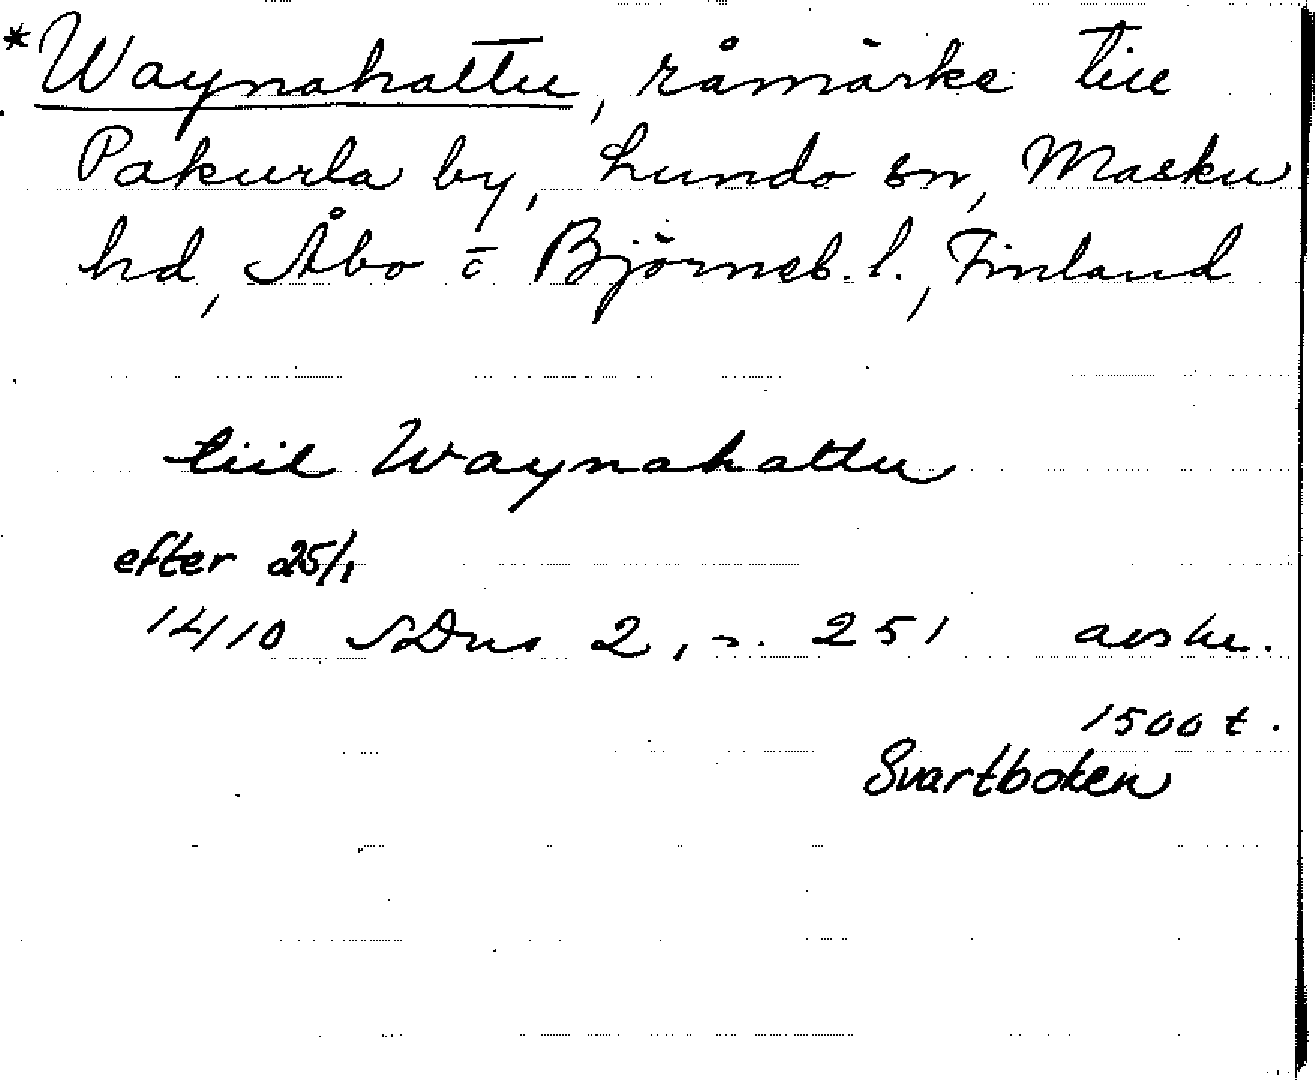 *Waynahattu, råmärke till
Pakurla by, Lundo sn, Masku
hd, Åbo o Björneb. l., Finland
tiil Waynahattu
efter 25/1
1410 SDns 2, s. 251 avskr.
1500 t.
Svartboken